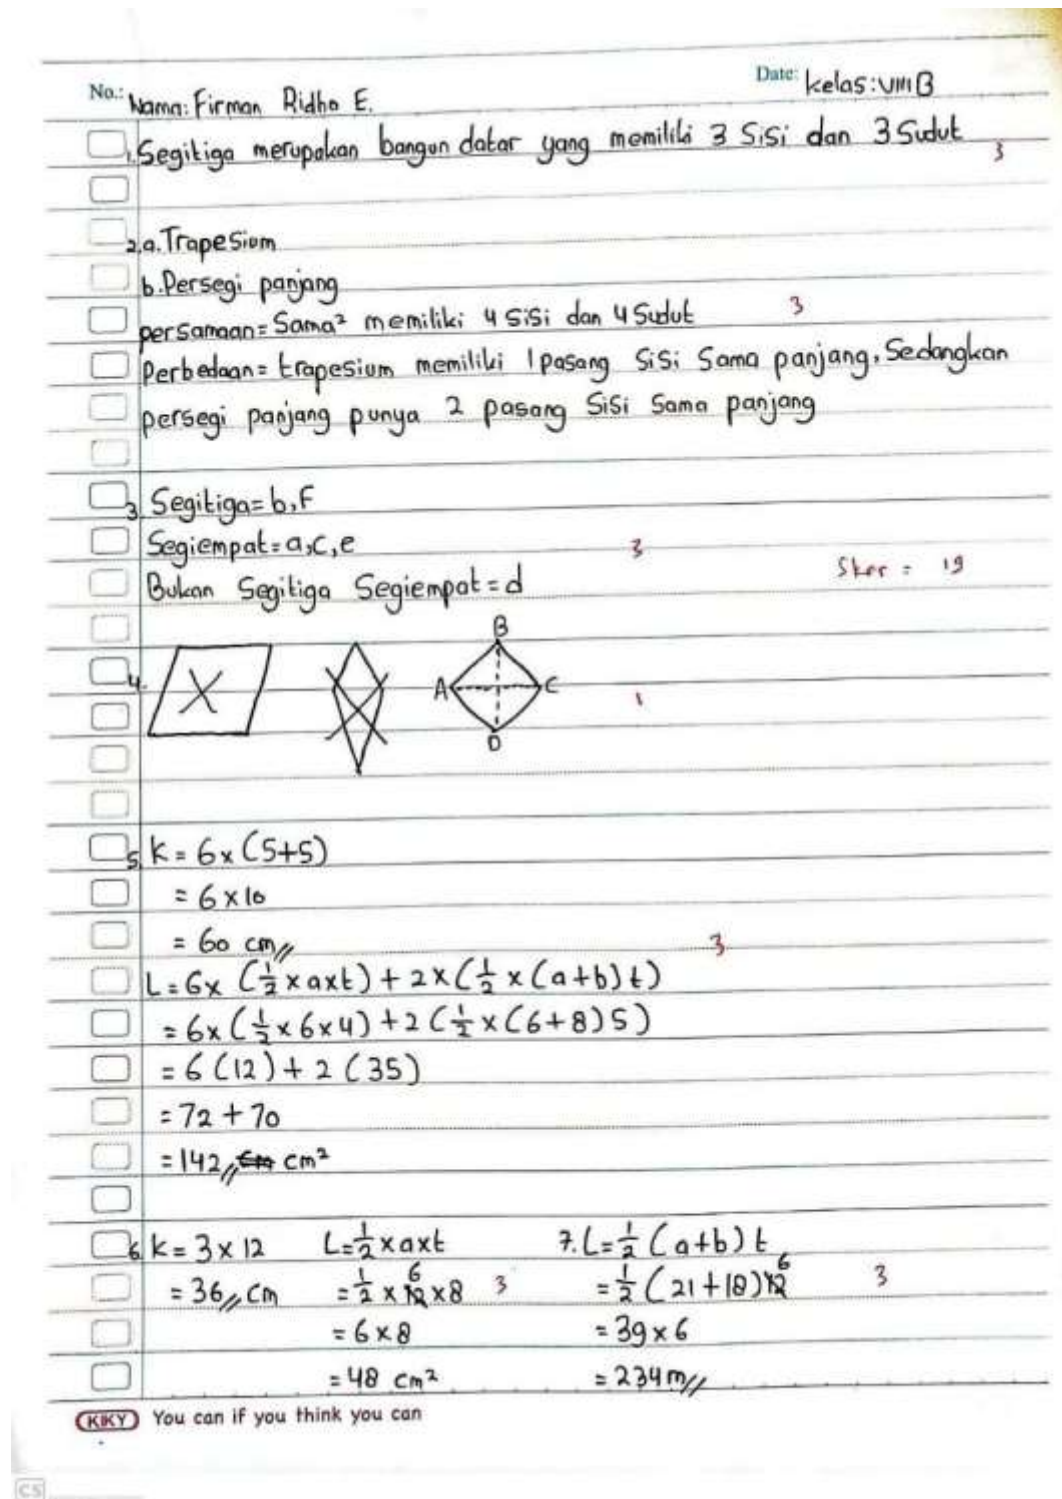 No.: Nama: Firman Ridho E. Date: Kelas: VIII B
1. Segitiga merupakan bangun datar yang memiliki 3 Sisi dan 3 Sudut 3
2. a. Trapesium
b. Persegi panjang
persamaan = Sama² memiliki 4 Sisi dan 4 Sudut 3
Perbedaan = trapesium memiliki 1 pasang Sisi Sama panjang, Sedangkan
persegi panjang punya 2 pasang Sisi Sama panjang
3. Segitiga = b, F
Segiempat = a, c, e 3
Bukan Segitiga Segiempat = d
Skor = 19
4. A B C D 1
5. K = 6 x (5+5)
= 6 x 10
= 60 cm // 3
L = 6 x (1/2 x a x t) + 2 x (1/2 x (a+b) t)
= 6 x (1/2 x 6 x 4) + 2 (1/2 x (6+8) 5)
= 6 (12) + 2 (35)
= 72 + 70
= 142 // cm cm²
6. K = 3 x 12 L = 1/2 x a x t 7. L = 1/2 (a+b) t
= 36 // cm = 1/2 x 12 6 x 8 3 = 1/2 (21 + 18) 12 6 3
= 6 x 8 = 39 x 6
= 48 cm² = 234 m //
KIKY You can if you think you can
CS